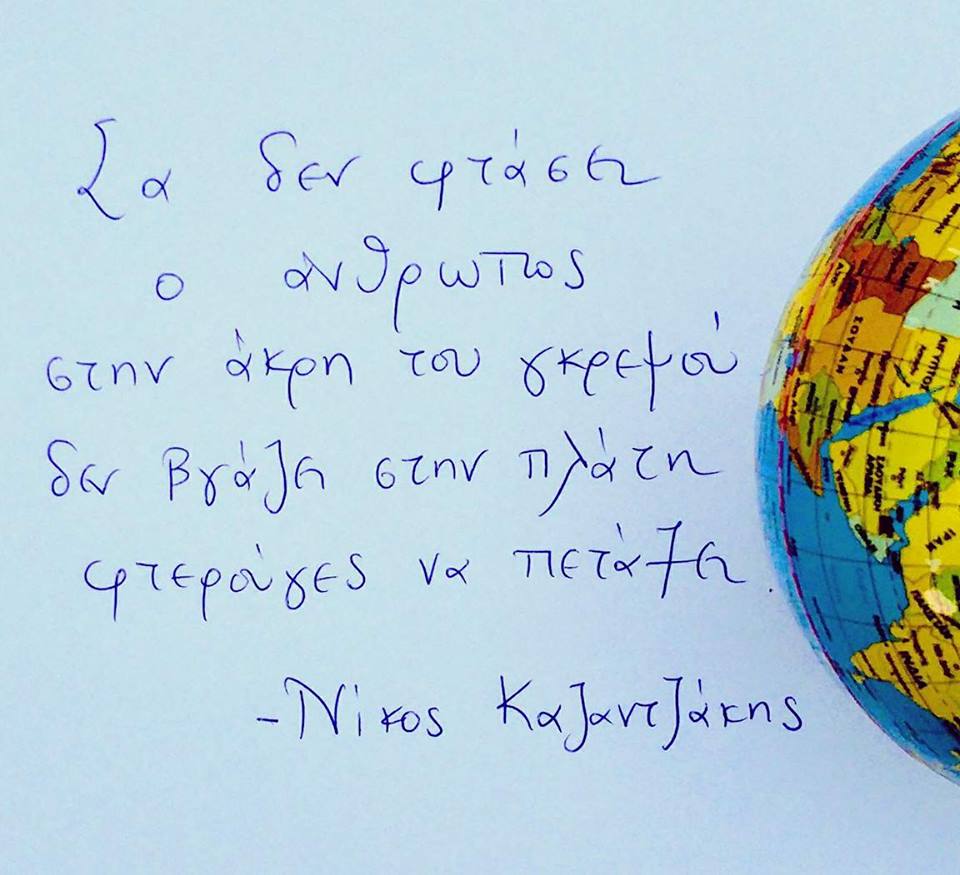 Σα δεν φτάσει
ο άνθρωπος
στην άκρη του γκρεμού
δεν βγάζει στην πλάτη
φτερούγες να πετάξει
-Νίκος Καζαντζάκης
ΣΟΥΔΑΝ
ΑΙΓΥΠΤΟΣ
ΙΡΑΝ
ΙΝΔΙΑ